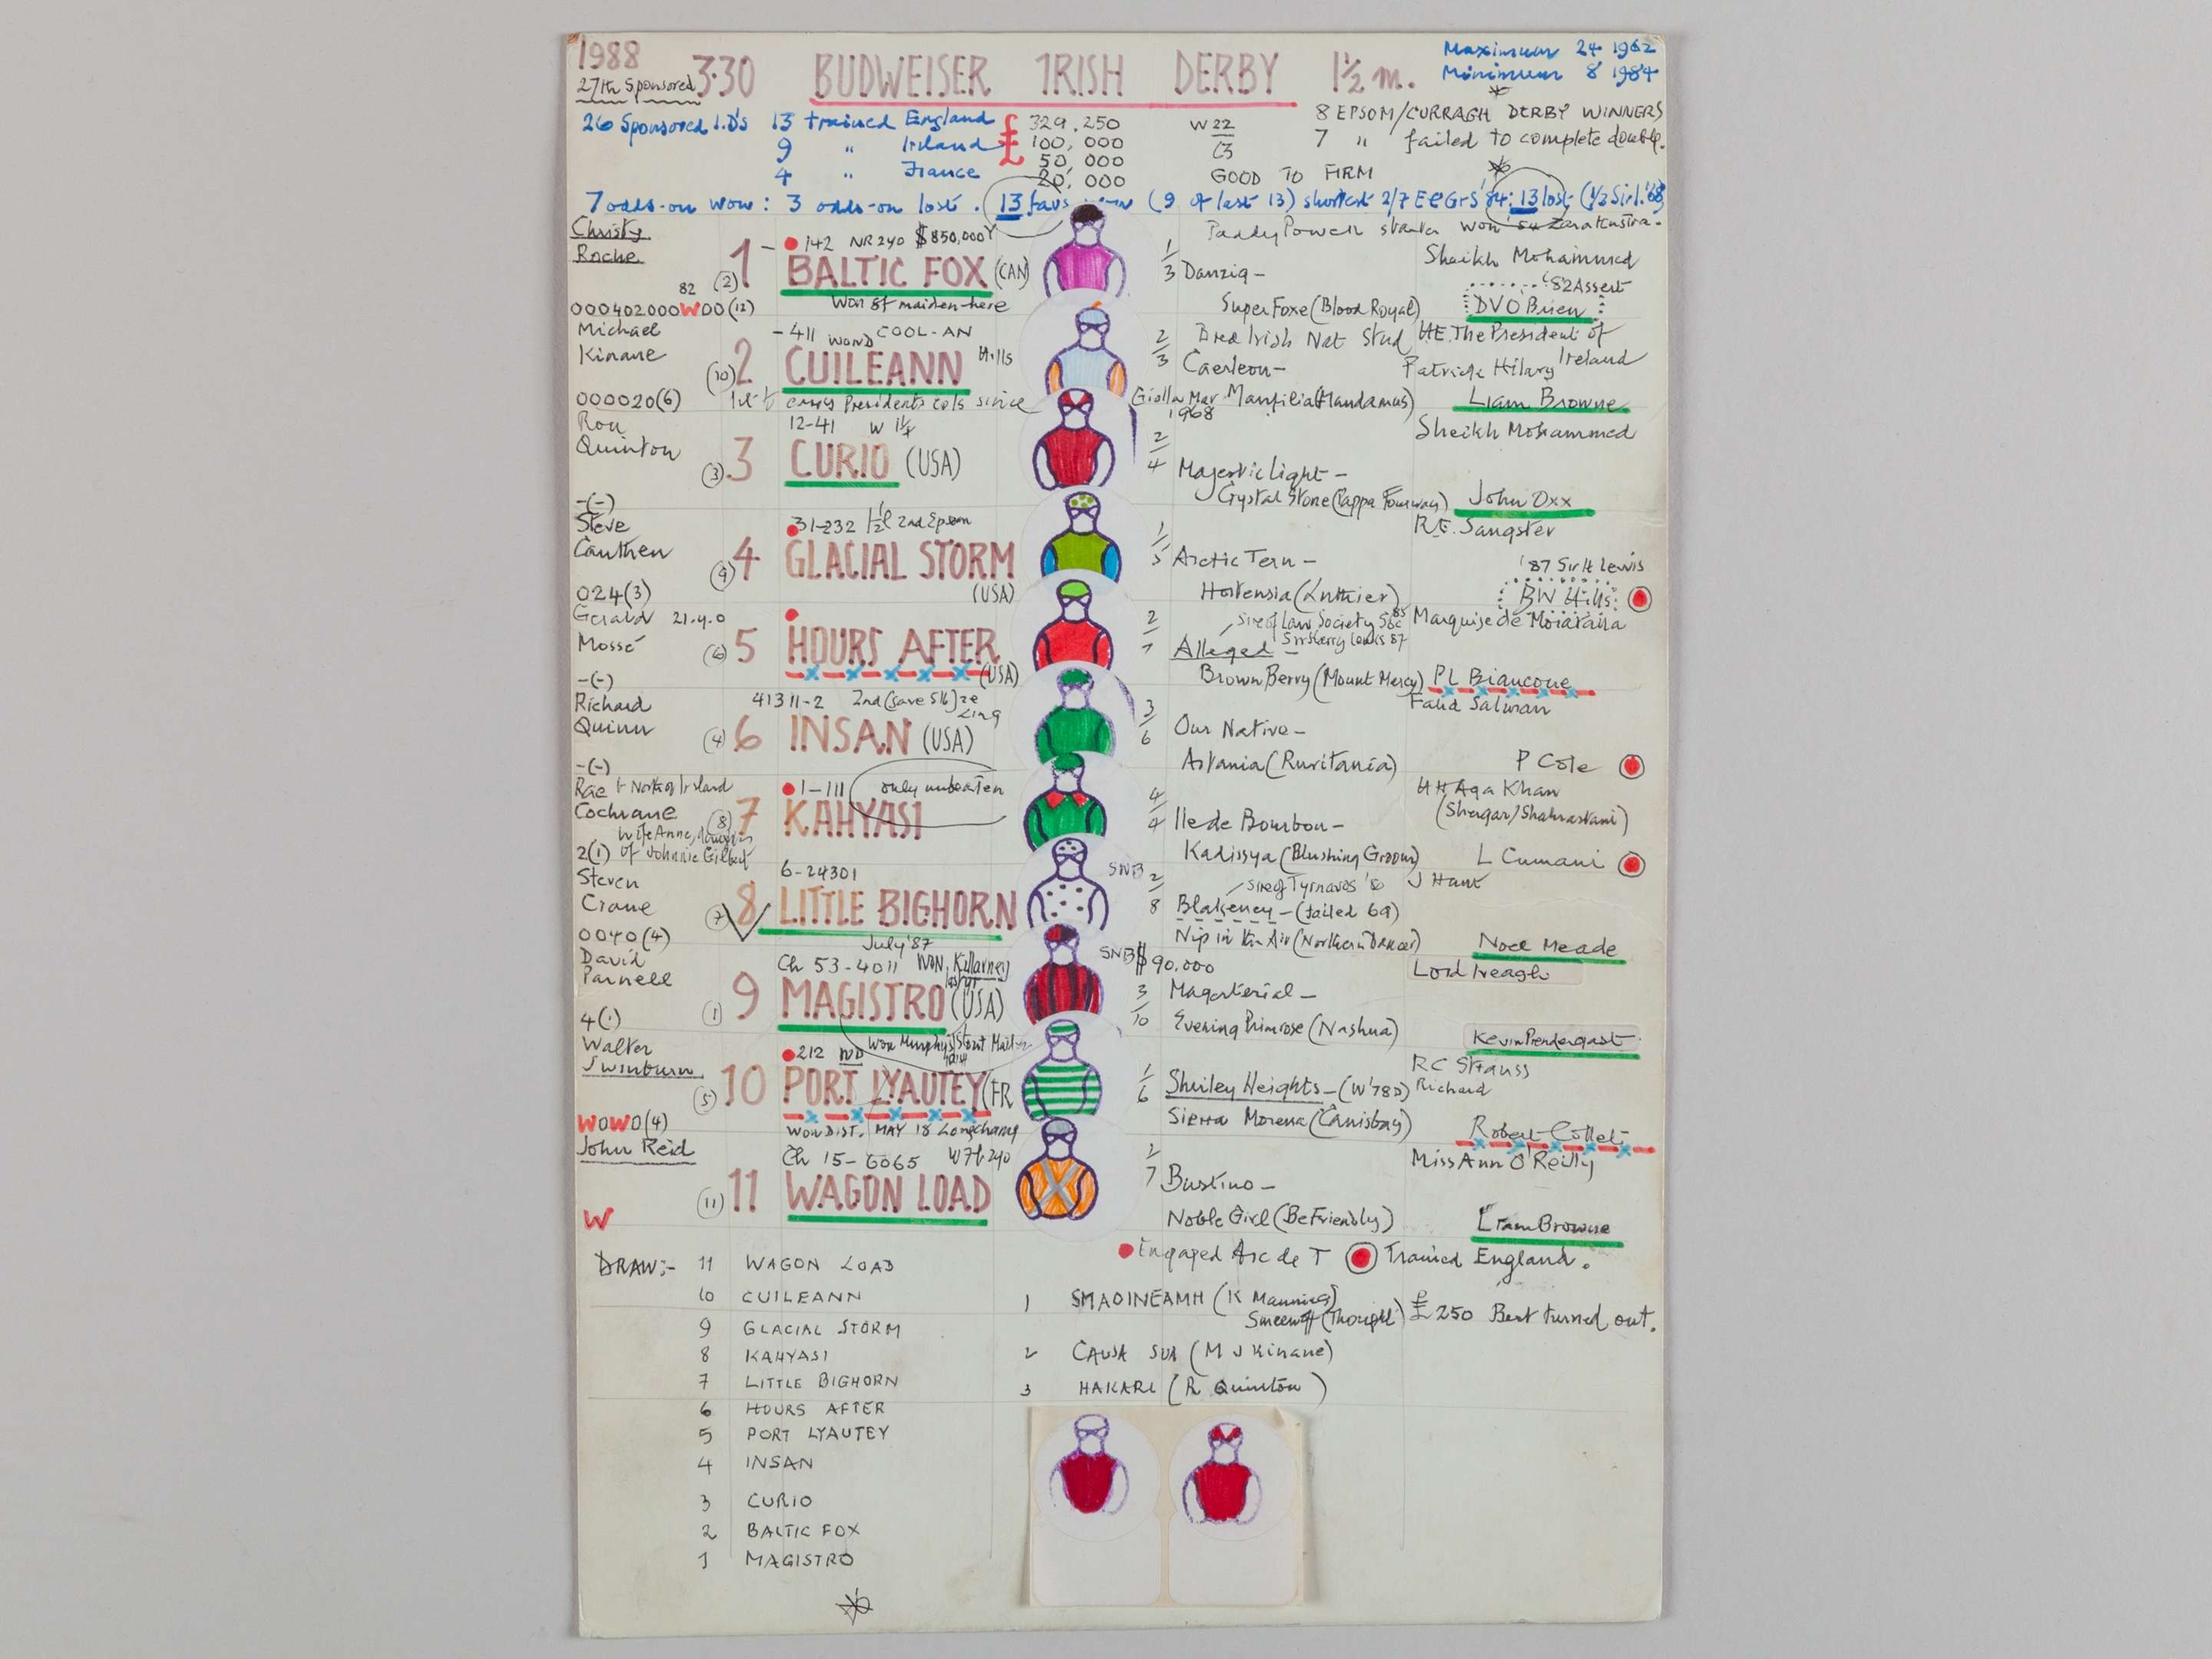 1988 3·30 BUDWEISER IRISH DERBY 1½ m. Maximum 24 1962
27th Sponsored Minimum 8 1984
26 Sponsored I.D's 13 trained England £ 329,250 W 22 8 EPSOM/CURRAGH DERBY WINNERS
9 " Ireland £ 100,000 L3 7 " failed to complete double.
50,000
4 " France 20,000 GOOD TO FIRM
7 odds-on won : 3 odds-on lost . 13 favs (9 of last 13) shortest 2/7 '84: 13 lost
Christy 1 - 142 NR 240 $850,000 Paddy Power won
Roche (2) BALTIC FOX (CAN) 1/3 Danzig - Sheikh Mohammed
82 Won 8f maiden here Super Foxe (Blood Royal) '82 Assert
000402000W00 (12) DVO Brien
Michael - 411 COOL-AN 2/3 Bred Irish Nat Stud HE. The President of
Kinane (10) 2 CUILEANN Hills Caerleon - Patrick Hilary Ireland
000020 (6) 1st to carry Presidents cols since Giolla Mear 1968 Manfilia (Mandamus) Liam Browne
Ron 12-41 W 1¼ Sheikh Mohammed
Quinton (3) 3 CURIO (USA) 2/4 Majestic Light -
-(-) Crystal Stone ( ) John Oxx
Steve 31-232 2nd Epsom R.E. Sangster
Cauthen (9) 4 GLACIAL STORM 1/5 Arctic Tern - '87 Sir H Lewis
024 (3) (USA) Hortensia (Luthier) BW Hills
Gerald 21.4.0 2/7 Sire of Law Society 85 Marquise de Moratalla
Mossé (6) 5 HOURS AFTER Alleged - Sir Harry Lewis 87
-(-) (USA) Brown Berry (Mount Mercy) PL Biancone
Richard 41311-2 2nd Fahd Salman
Quinn (4) 6 INSAN (USA) 3/6 Our Native -
-(-) Artania (Ruritania) P Cole
Rae 1-111 only unbeaten HH Aga Khan
Cochrane (8) 7 KAHYASI 4/4 Ile de Bourbon - (Shergar/Shahrastani)
wife Anne, daughter
2(1) of Johnnie Gilbert Kadissya (Blushing Groom) L Cumani
Steven 6-24301 SNB 2/8 Sire of Tyrnavos '80 J Hant
Crane (7) 8 LITTLE BIGHORN Blakeney - (failed 69)
0040 (4) July '87 Nip in the Air (Northern Dancer) Noel Meade
David Ch 53-4011 WON, Killarney SNB $90,000 Lord Iveagh
Parnell (1) 9 MAGISTRO (USA) 3/10 Magesterial -
4(1) Evening Primrose (Nashua) Kevin Prendergast
Walter 212 won Murphy's Stout RC Strauss
Swinburn (5) 10 PORT LYAUTEY (FR 1/6 Shirley Heights - (W '78 D) Richard
W0W0 (4) WON DIST. MAY 18 Longchamp Sierra Morena (Canisbay) Robert Collet
John Reid Ch 15-6065 W 7f 240 Miss Ann O'Reilly
(11) 11 WAGON LOAD 2/7 Bustino -
W Noble Girl (Be Friendly) Liam Browne
DRAW:- 11 WAGON LOAD Engaged Arc de T Trained England.
10 CUILEANN 1 SMAOINEAMH (K Manning)
9 GLACIAL STORM (Thought) £250 Best turned out.
8 KAHYASI 2 CAUSA SUA (M J Kinane)
7 LITTLE BIGHORN 3 HAKARI (R Quinton)
6 HOURS AFTER
5 PORT LYAUTEY
4 INSAN
3 CURIO
2 BALTIC FOX
1 MAGISTRO